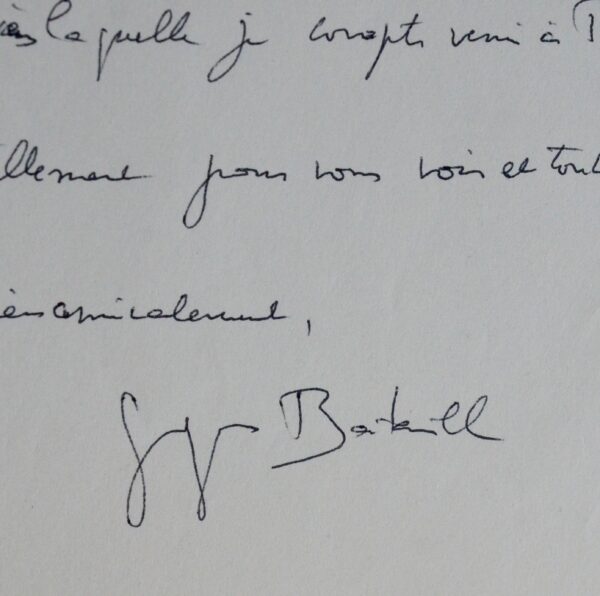 après laquelle je compte venir à P
ellement pour vous voir et tout
bien amicalement,
Georges Bataille